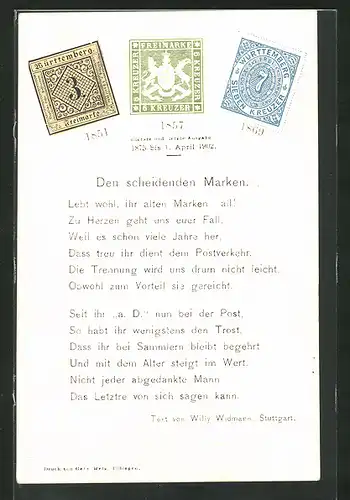 Württemberg
3
Freimarke
1851
FREIMARKE
6 KREUZER
6 KREUZER
6 KREUZER
1857
WÜRTTEMBERG
7
SIEBEN KREUZER
1869
letzte Ausgabe
1875 bis 1. April 1902.
Den scheidenden Marken.
Lebt wohl, ihr alten Marken all!
Zu Herzen geht uns euer Fall,
Weil es schon viele Jahre her,
Dass treu ihr dient dem Postverkehr.
Die Trennung wird uns drum nicht leicht,
Obwohl zum Vorteil sie gereicht.
Seit ihr „a. D." nun bei der Post,
So habt ihr wenigstens den Trost,
Dass ihr bei Sammlern bleibt begehrt
Und mit dem Alter steigt im Wert.
Nicht jeder abgedankte Mann
Das Letztre von sich sagen kann.
Text von Willy Widmann, Stuttgart.
Druck von Gebr. Metz, Tübingen.